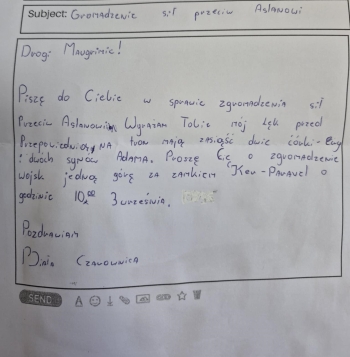 Subject: Gromadzenie sił przeciw Aslanowi
Drogi Maugrimie!
Piszę do Ciebie w sprawie zgromadzenia sił
Przeciw Aslanowi. Wyrażam Tobie mój lęk przed
Przepowiednią, NA tron mają zasiąść dwie córki Ewy
i dwóch synów Adama. Proszę Cię o zgromadzenie
wojsk jedną górę za zamkiem "Ker-Paravel o
godzinie 10.00 3 września,
Pozdrawiam
Biała Czarownica
SEND